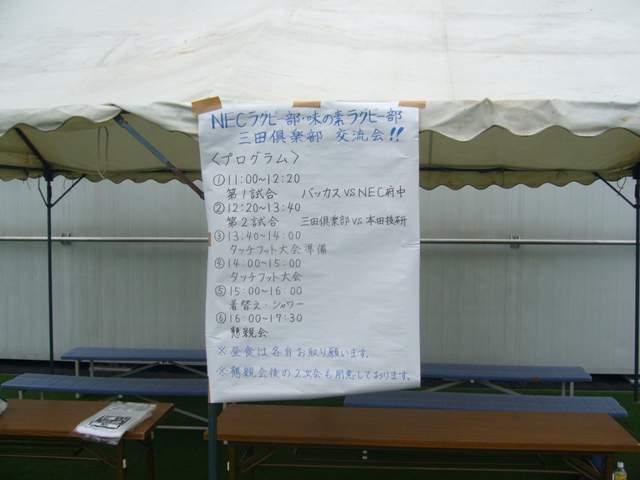 NECラグビー部・味の素ラグビー部
三田倶楽部 交流会!!
〈プログラム〉
①11:00~12:20
第1試合 バッカス VS NEC府中
②12:20~13:40
第2試合 三田倶楽部 VS 本田技研
③13:40~14:00
タッチフット大会準備
④14:00~15:00
タッチフット大会
⑤15:00~16:00
着替え・シャワー
⑥16:00~17:30
懇親会
※昼食は各自お取り願います。
※懇親会後の2次会も用意しております。